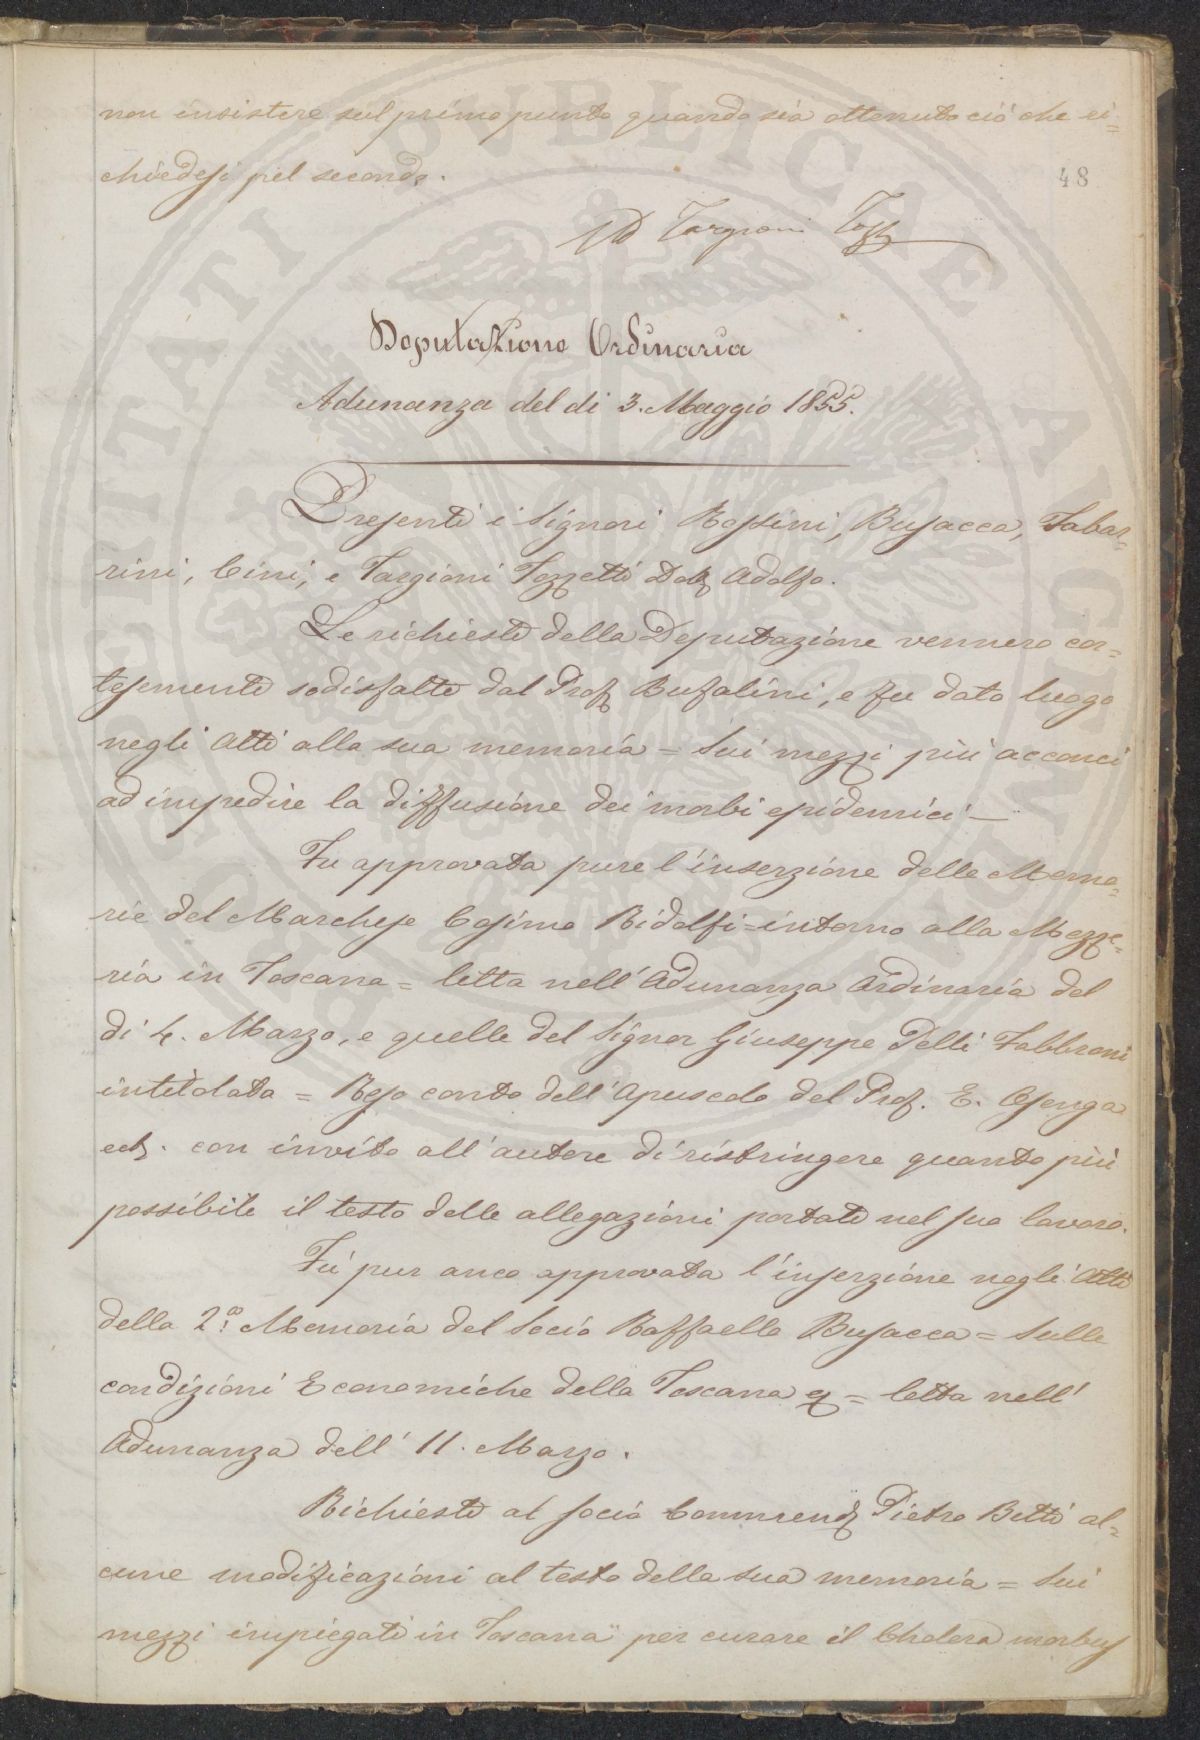 non insistere sul primo punto quando sia ottenuto ciò che ri=
chiedesi pel secondo.
48
AD Targioni Tozz
Deputazione Ordinaria
Adunanza del di 3. Maggio 1855.
Presenti i Signori Rossini, Busacca, Tabar=
rini, Cini, e Targioni Tozzetti Dott Adolfo.
Le richieste della Deputazione vennero cor=
tesemente sodisfatte dal Prof Bufalini, e fu dato luogo
negli Atti alla sua memoria = Sui mezzi più acconci
ad impedire la diffusione dei morbi epidemici —
Fu approvata pure l'inserzione delle Memo=
rie del Marchese Cosimo Ridolfi = intorno alla Mezze=
ria in Toscana = letta nell'Adunanza Ordinaria del
di 4. Marzo, e quelle del Signor Giuseppe Pelli Fabbroni
intitolata = Reso conto dell'Opuscolo del Prof. E.
con invito all'autore di ristringere quanto più
possibile il testo delle allegazioni portate nel suo lavoro.
Fù pur anco approvata l'inserzione negli Atti
della 2.a Memoria del Socio Raffaello Busacca = Sulle
condizioni Economiche della Toscana = letta nell'
Adunanza dell' 11. Marzo.
Richieste al socio Commend Pietro Betti al=
cune modificazioni al testo della sua memoria = Sui
mezzi impiegati in Toscana per curare il Cholera morbus
PROSPERITATI PVBLICAE AVGENDAE